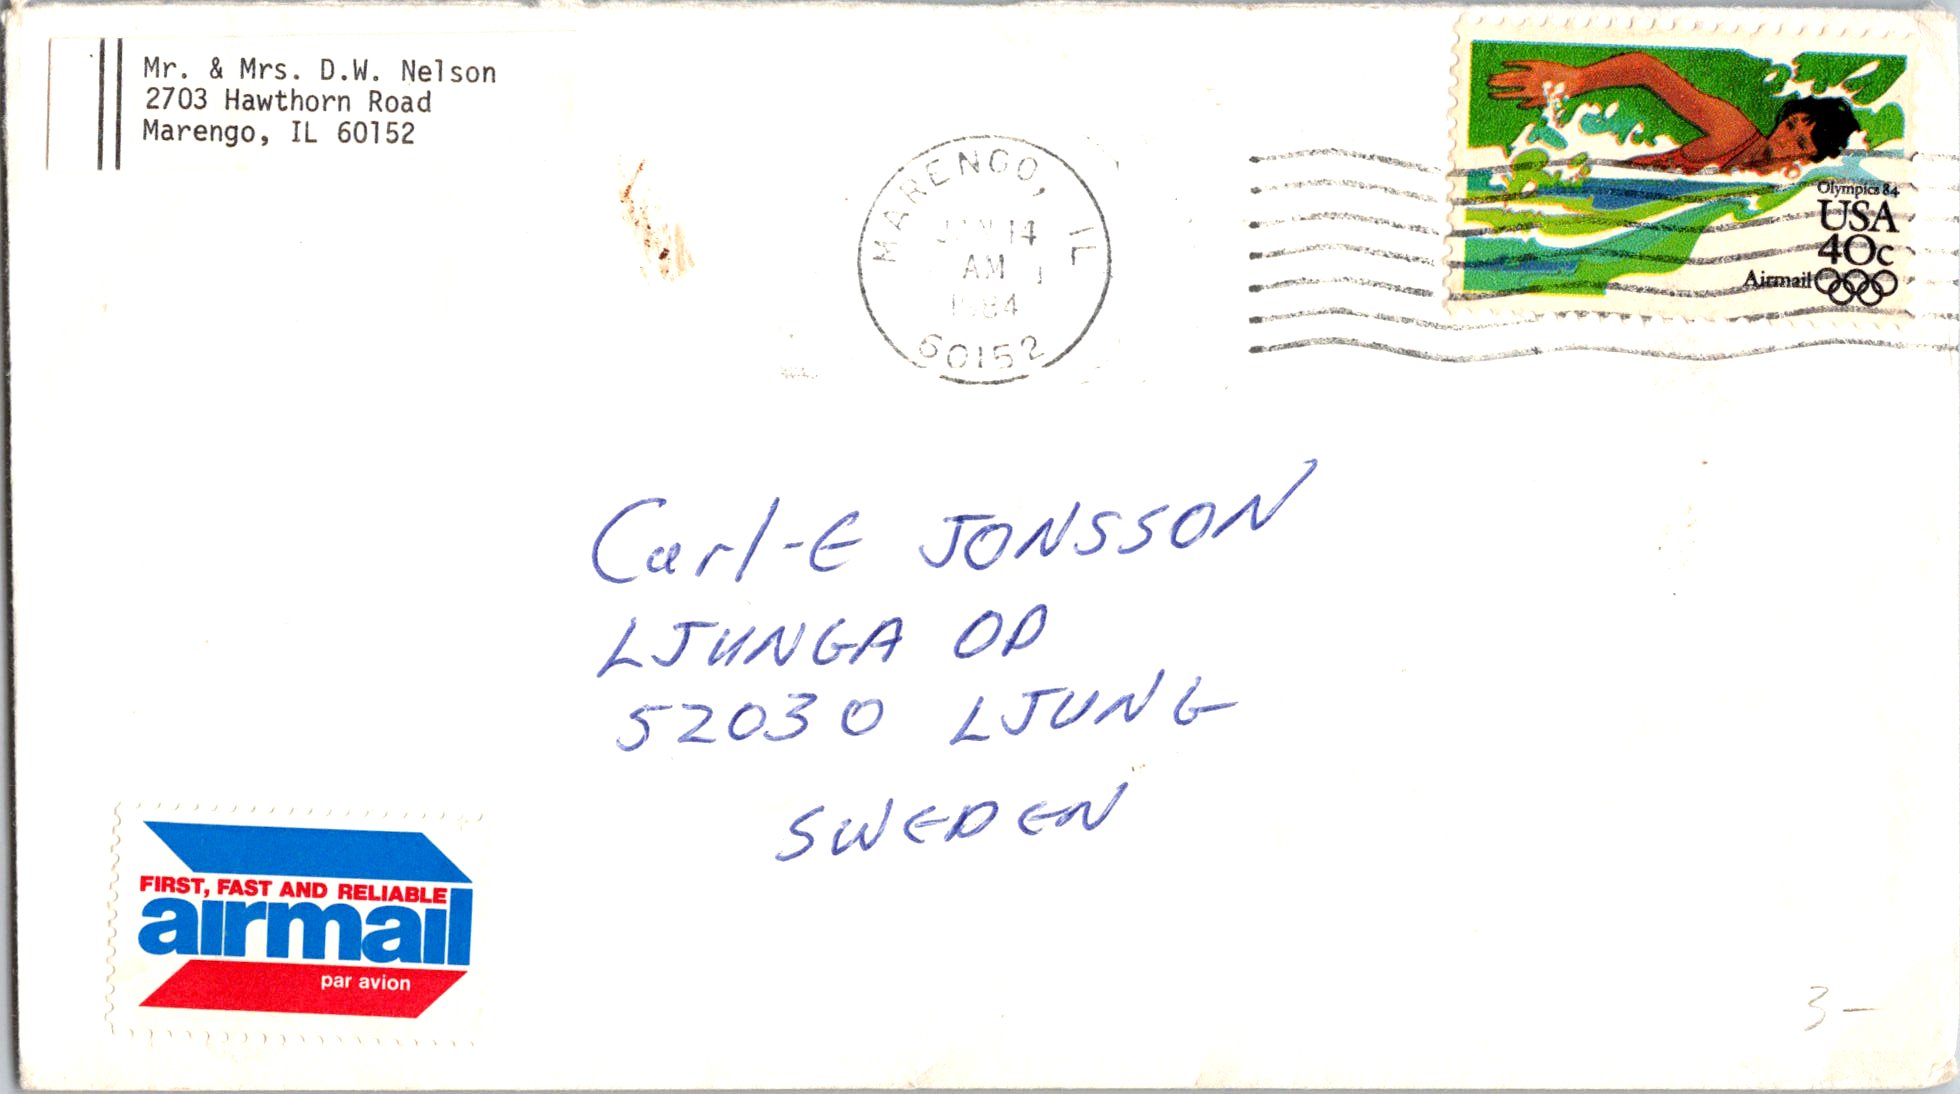 Mr. & Mrs. D.W. Nelson
2703 Hawthorn Road
Marengo, IL 60152
MARENGO, IL
JAN 14
AM
1984
60152
Olympics 84
USA
40c
Airmail
Carl-E JONSSON
LJUNGA OD
52030 LJUNG
SWEDEN
FIRST, FAST AND RELIABLE
airmail
par avion
3-